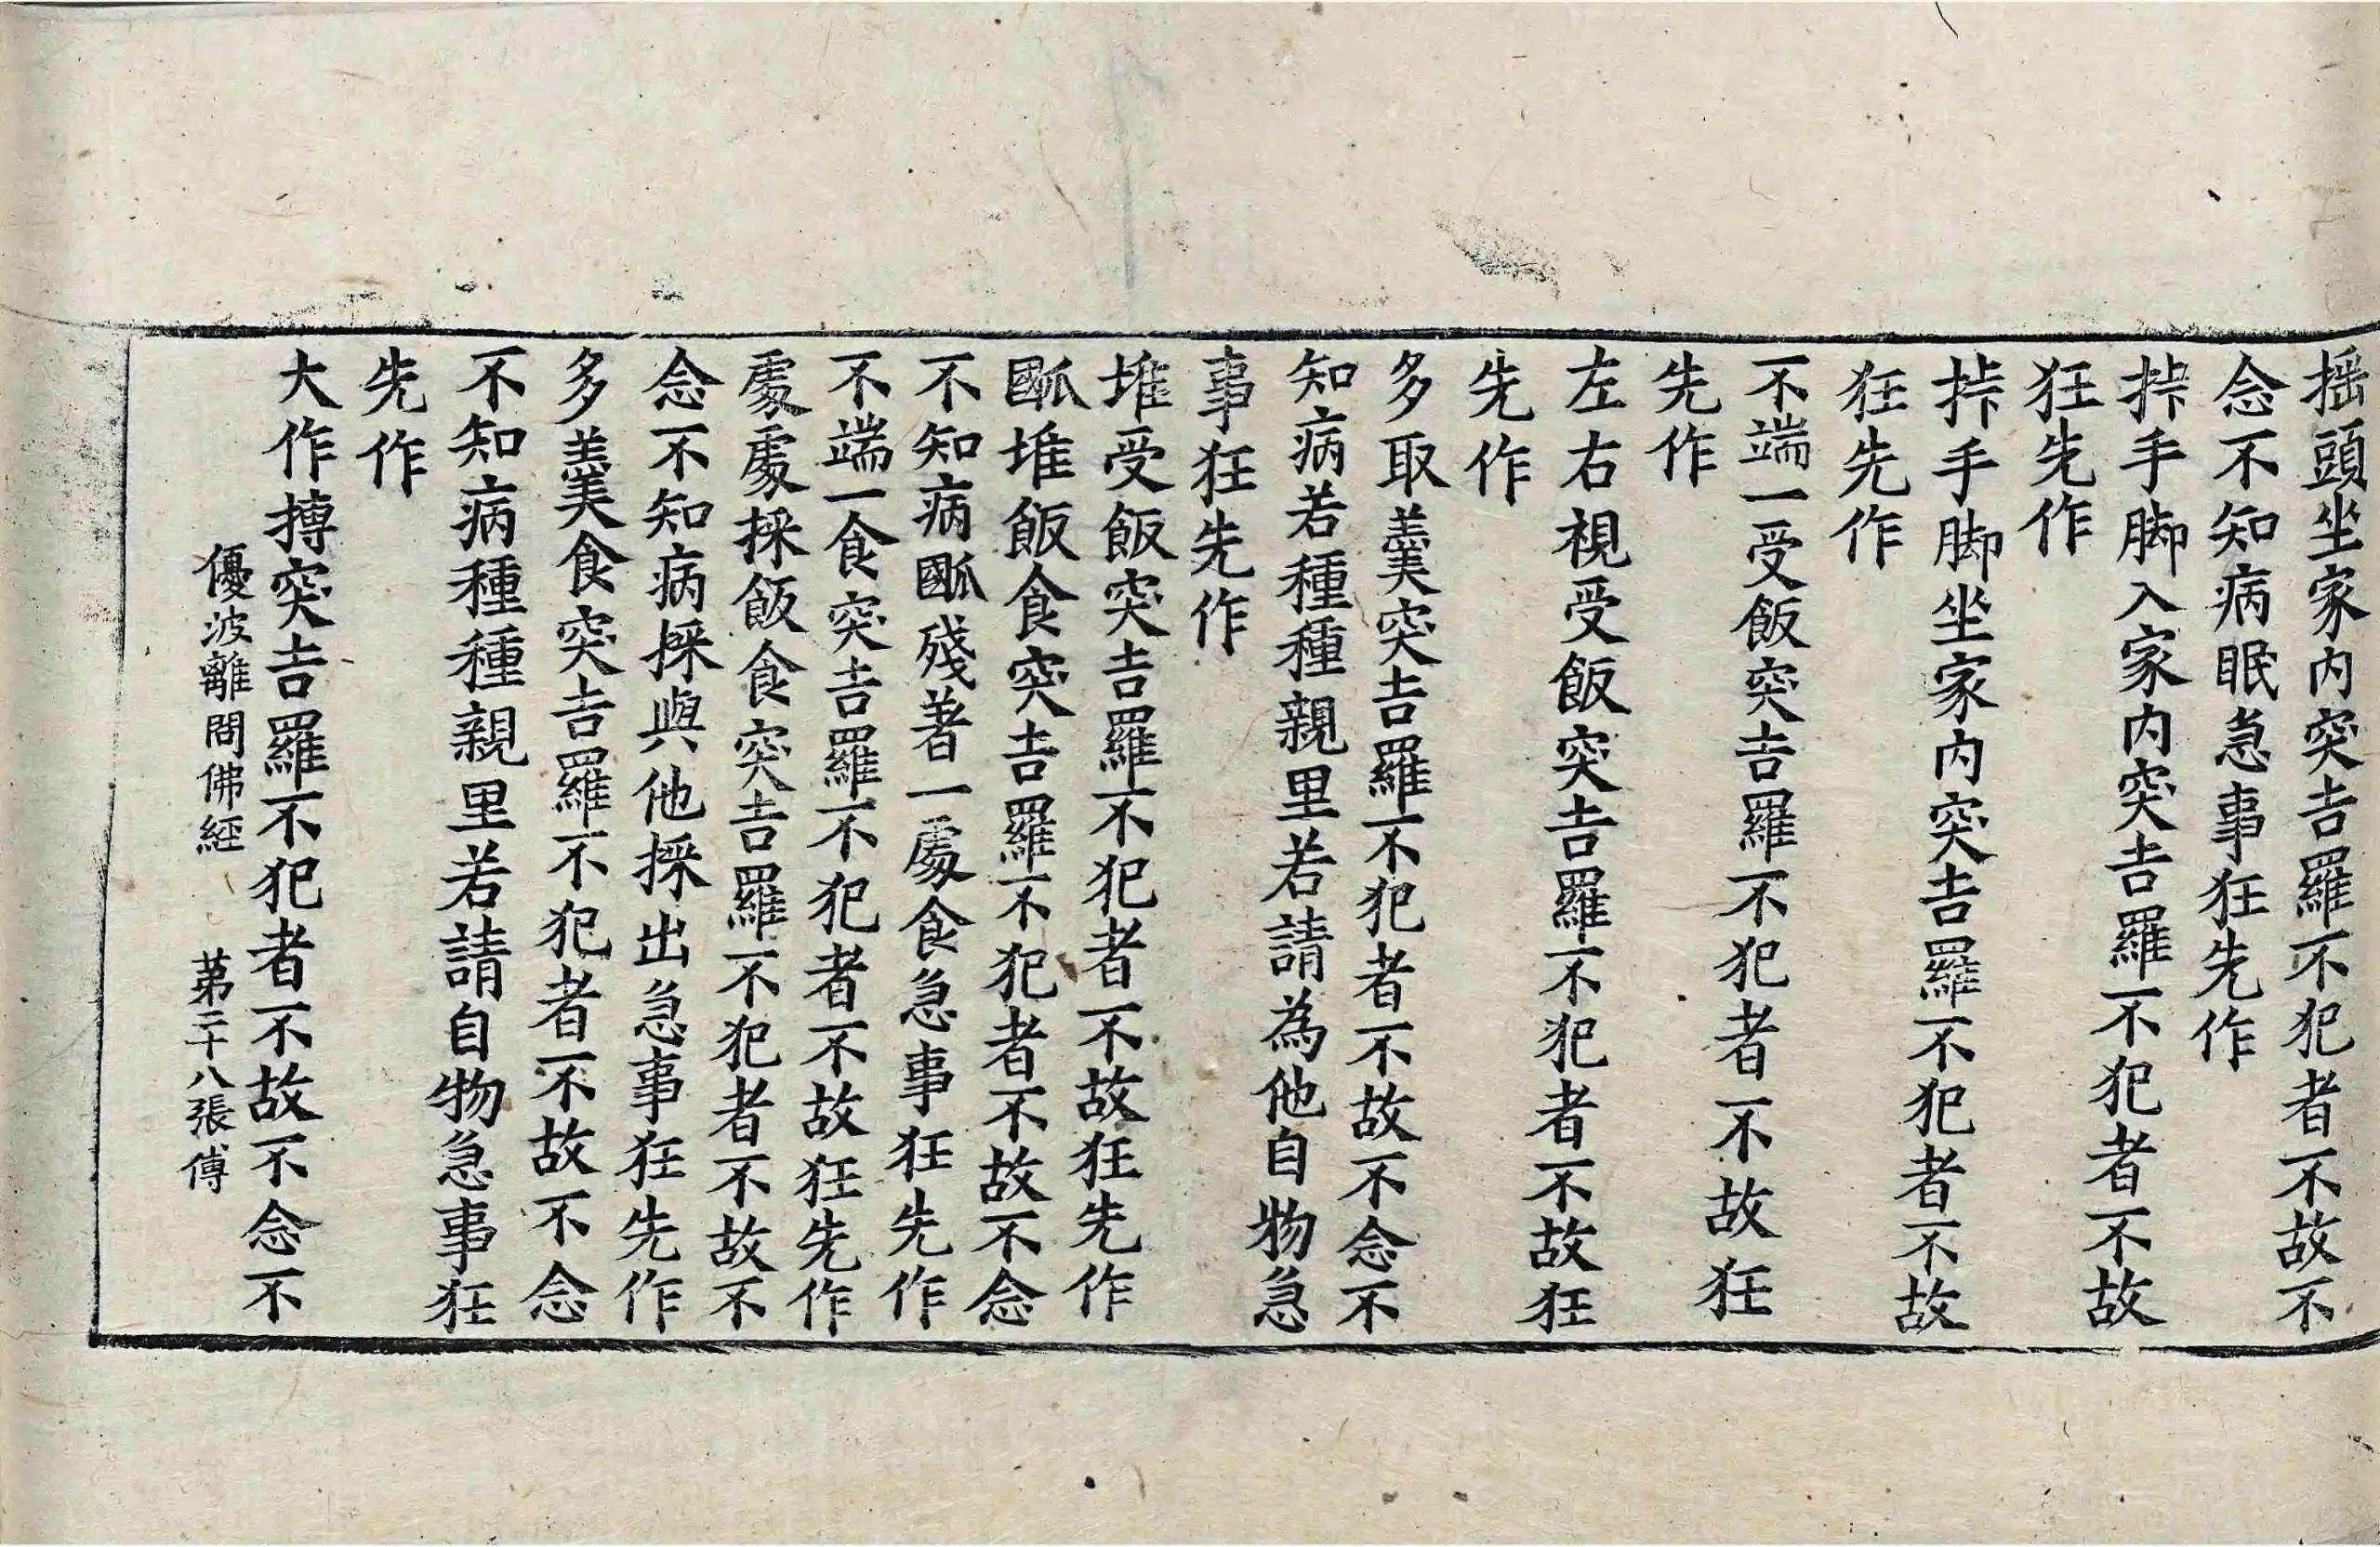 揺頭坐家内突吉羅不犯者不故不
念不知病眠急事狂先作
挊手脚入家内突吉羅不犯者不故
狂先作
挊手脚坐家内突吉羅不犯者不故
狂先作
不端一受飯突吉羅不犯者不故狂
先作
左右視受飯突吉羅不犯者不故狂
先作
多取羹突吉羅不犯者不故不念不
知病若種種親里若請為他自物急
事狂先作
堆受飯突吉羅不犯者不故狂先作
𪘨堆飯食突吉羅不犯者不故不念
不知病𪘨殘著一處食急事狂先作
不端一食突吉羅不犯者不故狂先作
處處採飯食突吉羅不犯者不故不
念不知病採與他採出急事狂先作
多羹食突吉羅不犯者不故不念
不知病種種親里若請自物急事狂
先作
大作搏突吉羅不犯者不故不念不
優波離問佛經 第二十八張傅